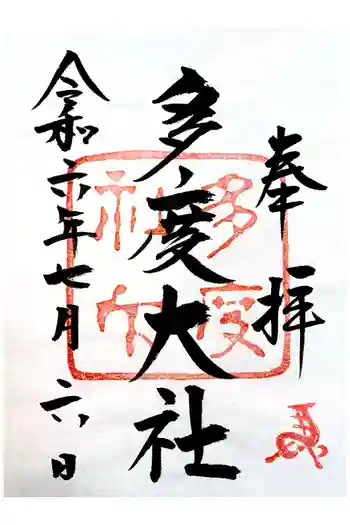 奉拝
多度大社
令和六年七月六日
多度